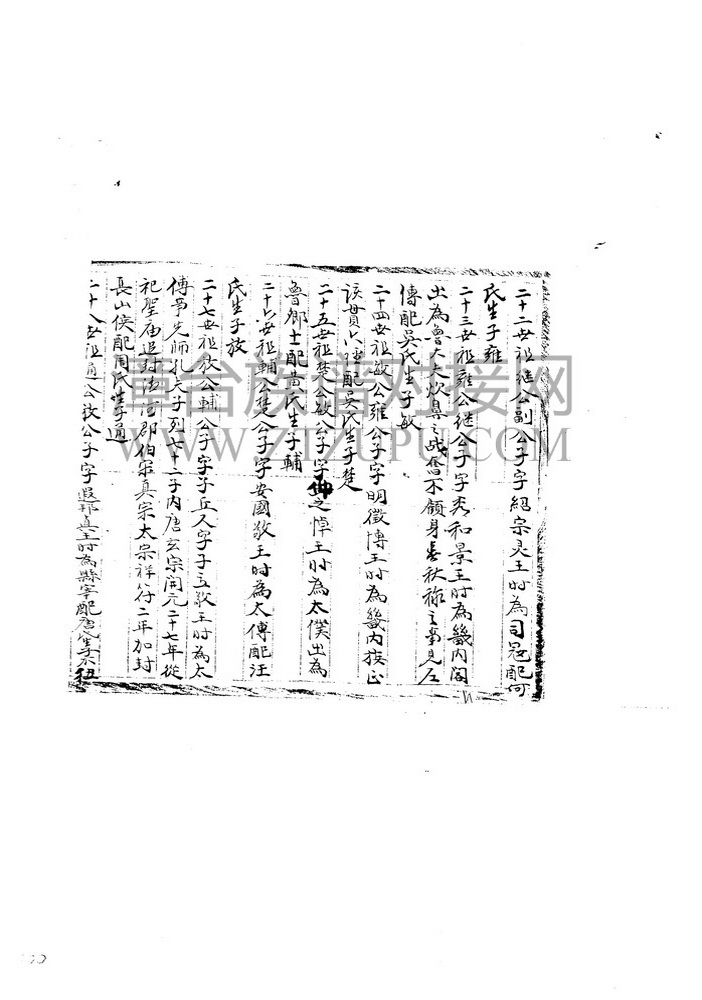 二十二世祖继公副公子字紹宗灵王时為司冠配何
氏生子雍
二十三世祖雍公继公子字秀和景王时為畿内閣
出為魯大夫炊鼻之战奮不顧身春秋禄之事見左
傳配吴氏生子敏
二十四世祖敏公雍公子字明徵博王时為畿内
配吴氏生子楚
二十五世祖楚公敏公子字仲之悼王时為太僕出為
魯郷士配黄氏生子輔
二十六世祖輔公楚公子字安國敬王时為太傅配汪
氏生子放
二十七世祖放公輔公子字子丘又字子立敬王时為太
傅爭先師孔夫子列七十二子内唐玄宗開元二十七年從
祀聖庙追封清河郡伯宋真宗太宗祥符二年加封
長山侯配周氏生子通
二十八世祖通公放公子字邦真王时為縣宰配唐氏生子
章台族谱对接网
WWW.ZJZUPU.COM